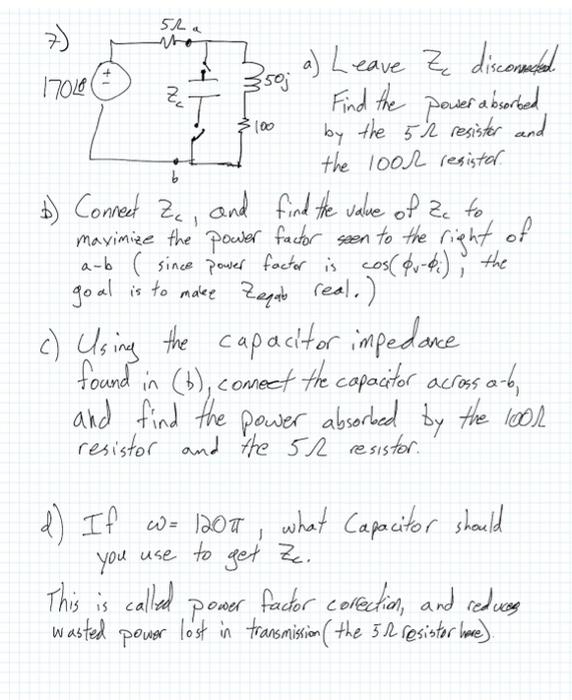 7)
5Ω a
170∠0
+
-
Zc
50j
100
b
a) Leave Zc disconnected.
Find the power absorbed
by the 5Ω resistor and
the 100Ω resistor.
b) Connect Zc, and find the value of Zc to
maximize the power factor seen to the right of
a-b ( since power factor is cos(ϕv-ϕi), the
goal is to make Zeqab real.)
c) Using the capacitor impedance
found in (b), connect the capacitor across a-b,
and find the power absorbed by the 100Ω
resistor and the 5Ω resistor.
d) If ω= 120π, what Capacitor should
you use to get Zc.
This is called power factor correction, and reduces
wasted power lost in transmission( the 5Ω resistor here).